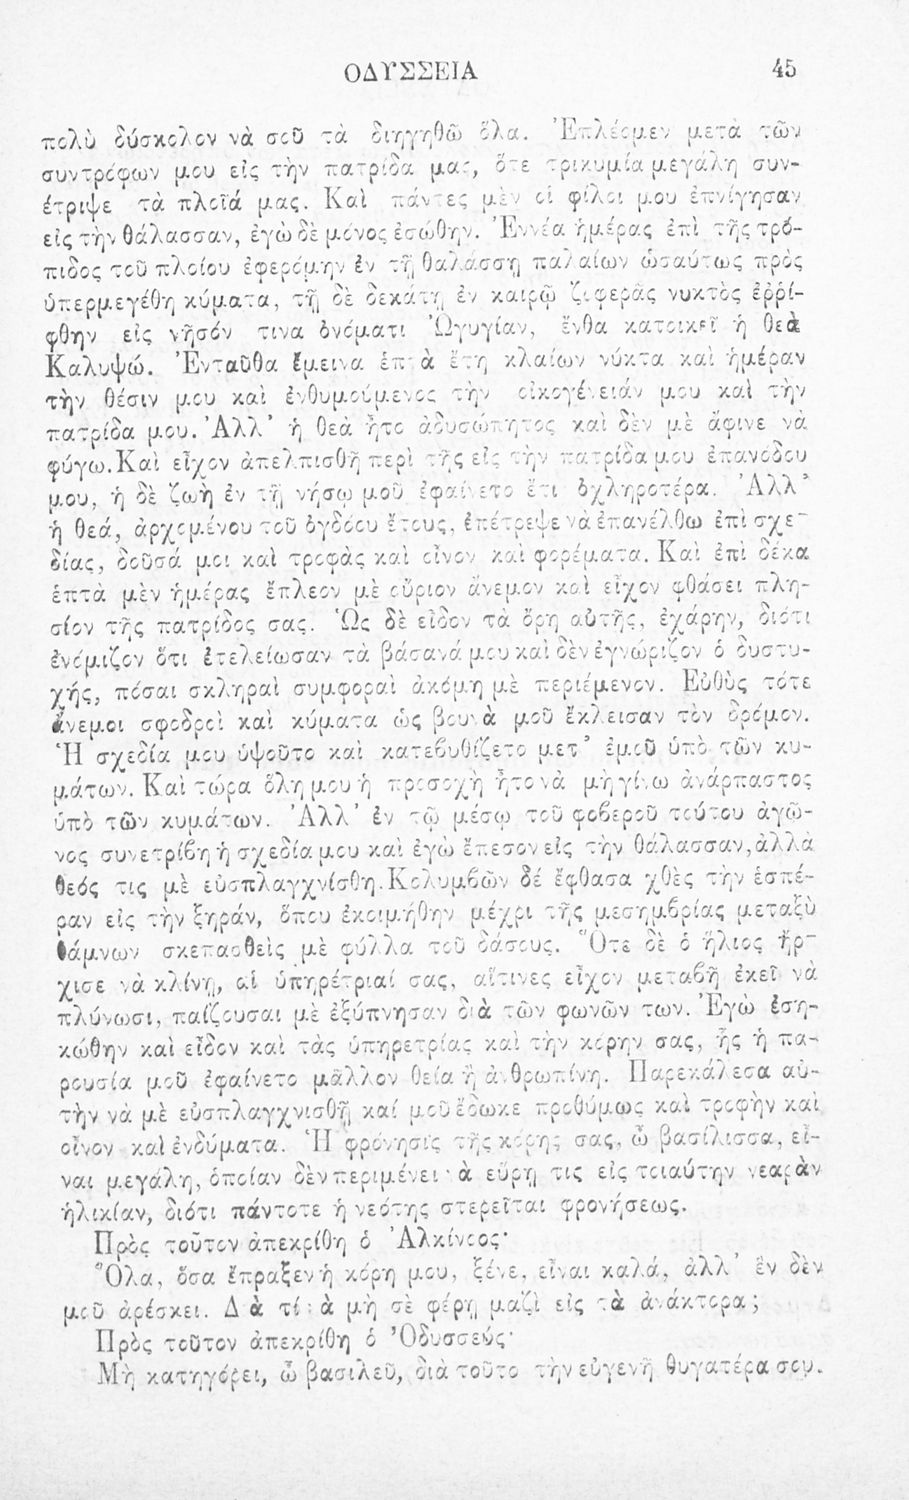 ΟΔΥΣΣΕΙΑ 45
πολὺ δύσκολον νὰ σοῦ τὰ διηγηθῶ ὅλα. Ἐπλέομεν μετὰ τῶν
συντρόφων μου εἰς τὴν πατρίδα μας, ὅτε τρικυμία μεγάλη συν-
έτριψε τὰ πλοῖά μας. Καὶ πάντες μὲν οἱ φίλοι μου ἐπνίγησαν
εἰς τὴν θάλασσαν, ἐγὼ δὲ μόνος ἐσώθην. Ἐννέα ἡμέρας ἐπὶ τῆς τρό-
πιδος τοῦ πλοίου ἐφερόμην ἐν τῇ θαλάσσῃ παλαίων ὡσαύτως πρὸς
ὑπερμεγέθη κύματα, τῇ δὲ δεκάτῃ ἐν καιρῷ ζοφερᾶς νυκτὸς ἐῤῥί-
φθην εἰς νῆσόν τινα ὀνόματι Ὠγυγίαν, ἔνθα κατοικεῖ ἡ θεὰ
Καλυψώ. Ἐνταῦθα ἔμεινα ἑπτὰ ἔτη κλαίων νύκτα καὶ ἡμέραν
τὴν θέσιν μου καὶ ἐνθυμούμενος τὴν οἰκογένειάν μου καὶ τὴν
πατρίδα μου. Ἀλλ' ἡ θεὰ ἦτο ἀδυσώπητος καὶ δὲν μὲ ἄφινε νὰ
φύγω. Καὶ εἶχον ἀπελπισθῆ περὶ τῆς εἰς τὴν πατρίδα μου ἐπανόδου
μου, ἡ δὲ ζωὴ ἐν τῇ νήσῳ μοῦ ἐφαίνετο ἔτι ὀχληροτέρα. Ἀλλ'
ἡ θεά, ἀρχομένου τοῦ ὀγδόου ἔτους, ἐπέτρεψε νὰ ἐπανέλθω ἐπὶ σχε-
δίας, δοῦσά μοι καὶ τροφὰς καὶ οἶνον καὶ φορέματα. Καὶ ἐπὶ δέκα
ἑπτὰ μὲν ἡμέρας ἔπλεον μὲ οὔριον ἄνεμον καὶ εἶχον φθάσει πλη-
σίον τῆς πατρίδος σας. Ὡς δὲ εἶδον τὰ ὄρη αὐτῆς, ἐχάρην, διότι
ἐνόμιζον ὅτι ἐτελείωσαν τὰ βάσανά μου καὶ δὲν ἐγνώριζον ὁ δυστυ-
χής, πόσαι σκληραὶ συμφοραὶ ἀκόμη μὲ περιέμενον. Εὐθὺς τότε
ἄνεμοι σφοδροὶ καὶ κύματα ὡς βουνὰ μοῦ ἔκλεισαν τὸν δρόμον.
Ἡ σχεδία μου ὑψοῦτο καὶ κατεβυθίζετο μετ' ἐμοῦ ὑπὸ τῶν κυ-
μάτων. Καὶ τώρα ὅλη μου ἡ προσοχὴ ἦτο νὰ μὴ γίνω ἀνάρπαστος
ὑπὸ τῶν κυμάτων. Ἀλλ' ἐν τῷ μέσῳ τοῦ φοβεροῦ τούτου ἀγῶ-
νος συνετρίβη ἡ σχεδία μου καὶ ἐγὼ ἔπεσον εἰς τὴν θάλασσαν, ἀλλὰ
θεός τις μὲ εὐσπλαγχνίσθη. Κολυμβῶν δέ ἔφθασα χθὲς τὴν ἑσπέ-
ραν εἰς τὴν ξηράν, ὅπου ἐκοιμήθην μέχρι τῆς μεσημβρίας μεταξὺ
θάμνων σκεπασθεὶς μὲ φύλλα τοῦ δάσους. Ὅτε δὲ ὁ ἥλιος ἤρ-
χισε νὰ κλίνῃ, αἱ ὑπηρέτριαί σας, αἵτινες εἶχον μεταβῆ ἐκεῖ νὰ
πλύνωσι, παίζουσαι μὲ ἐξύπνησαν διὰ τῶν φωνῶν των. Ἐγὼ ἐση-
κώθην καὶ εἶδον καὶ τὰς ὑπηρετρίας καὶ τὴν κόρην σας, ἧς ἡ πα-
ρουσία μοῦ ἐφαίνετο μᾶλλον θεία ἢ ἀνθρωπίνη. Παρεκάλεσα αὐ-
τὴν νὰ μὲ εὐσπλαγχνισθῇ καί μοῦ ἔδωκε προθύμως καὶ τροφὴν καὶ
οἶνον καὶ ἐνδύματα. Ἡ φρόνησις τῆς κόρης σας, ὦ βασίλισσα, εἶ-
ναι μεγάλη, ὁποίαν δὲν περιμένει νὰ εὕρῃ τις εἰς τοιαύτην νεαρὰν
ἡλικίαν, διότι πάντοτε ἡ νεότης στερεῖται φρονήσεως.
Πρὸς τοῦτον ἀπεκρίθη ὁ Ἀλκίνοος·
Ὅλα, ὅσα ἔπραξεν ἡ κόρη μου, ξένε, εἶναι καλά, ἀλλ' ἓν δὲν
μοῦ ἀρέσκει. Διὰ τί νὰ μὴ σὲ φέρῃ μαζὶ εἰς τὰ ἀνάκτορα;
Πρὸς τοῦτον ἀπεκρίθη ὁ Ὀδυσσεύς·
Μὴ κατηγόρει, ὦ βασιλεῦ, διὰ τοῦτο τὴν εὐγενῆ θυγατέρα σου.